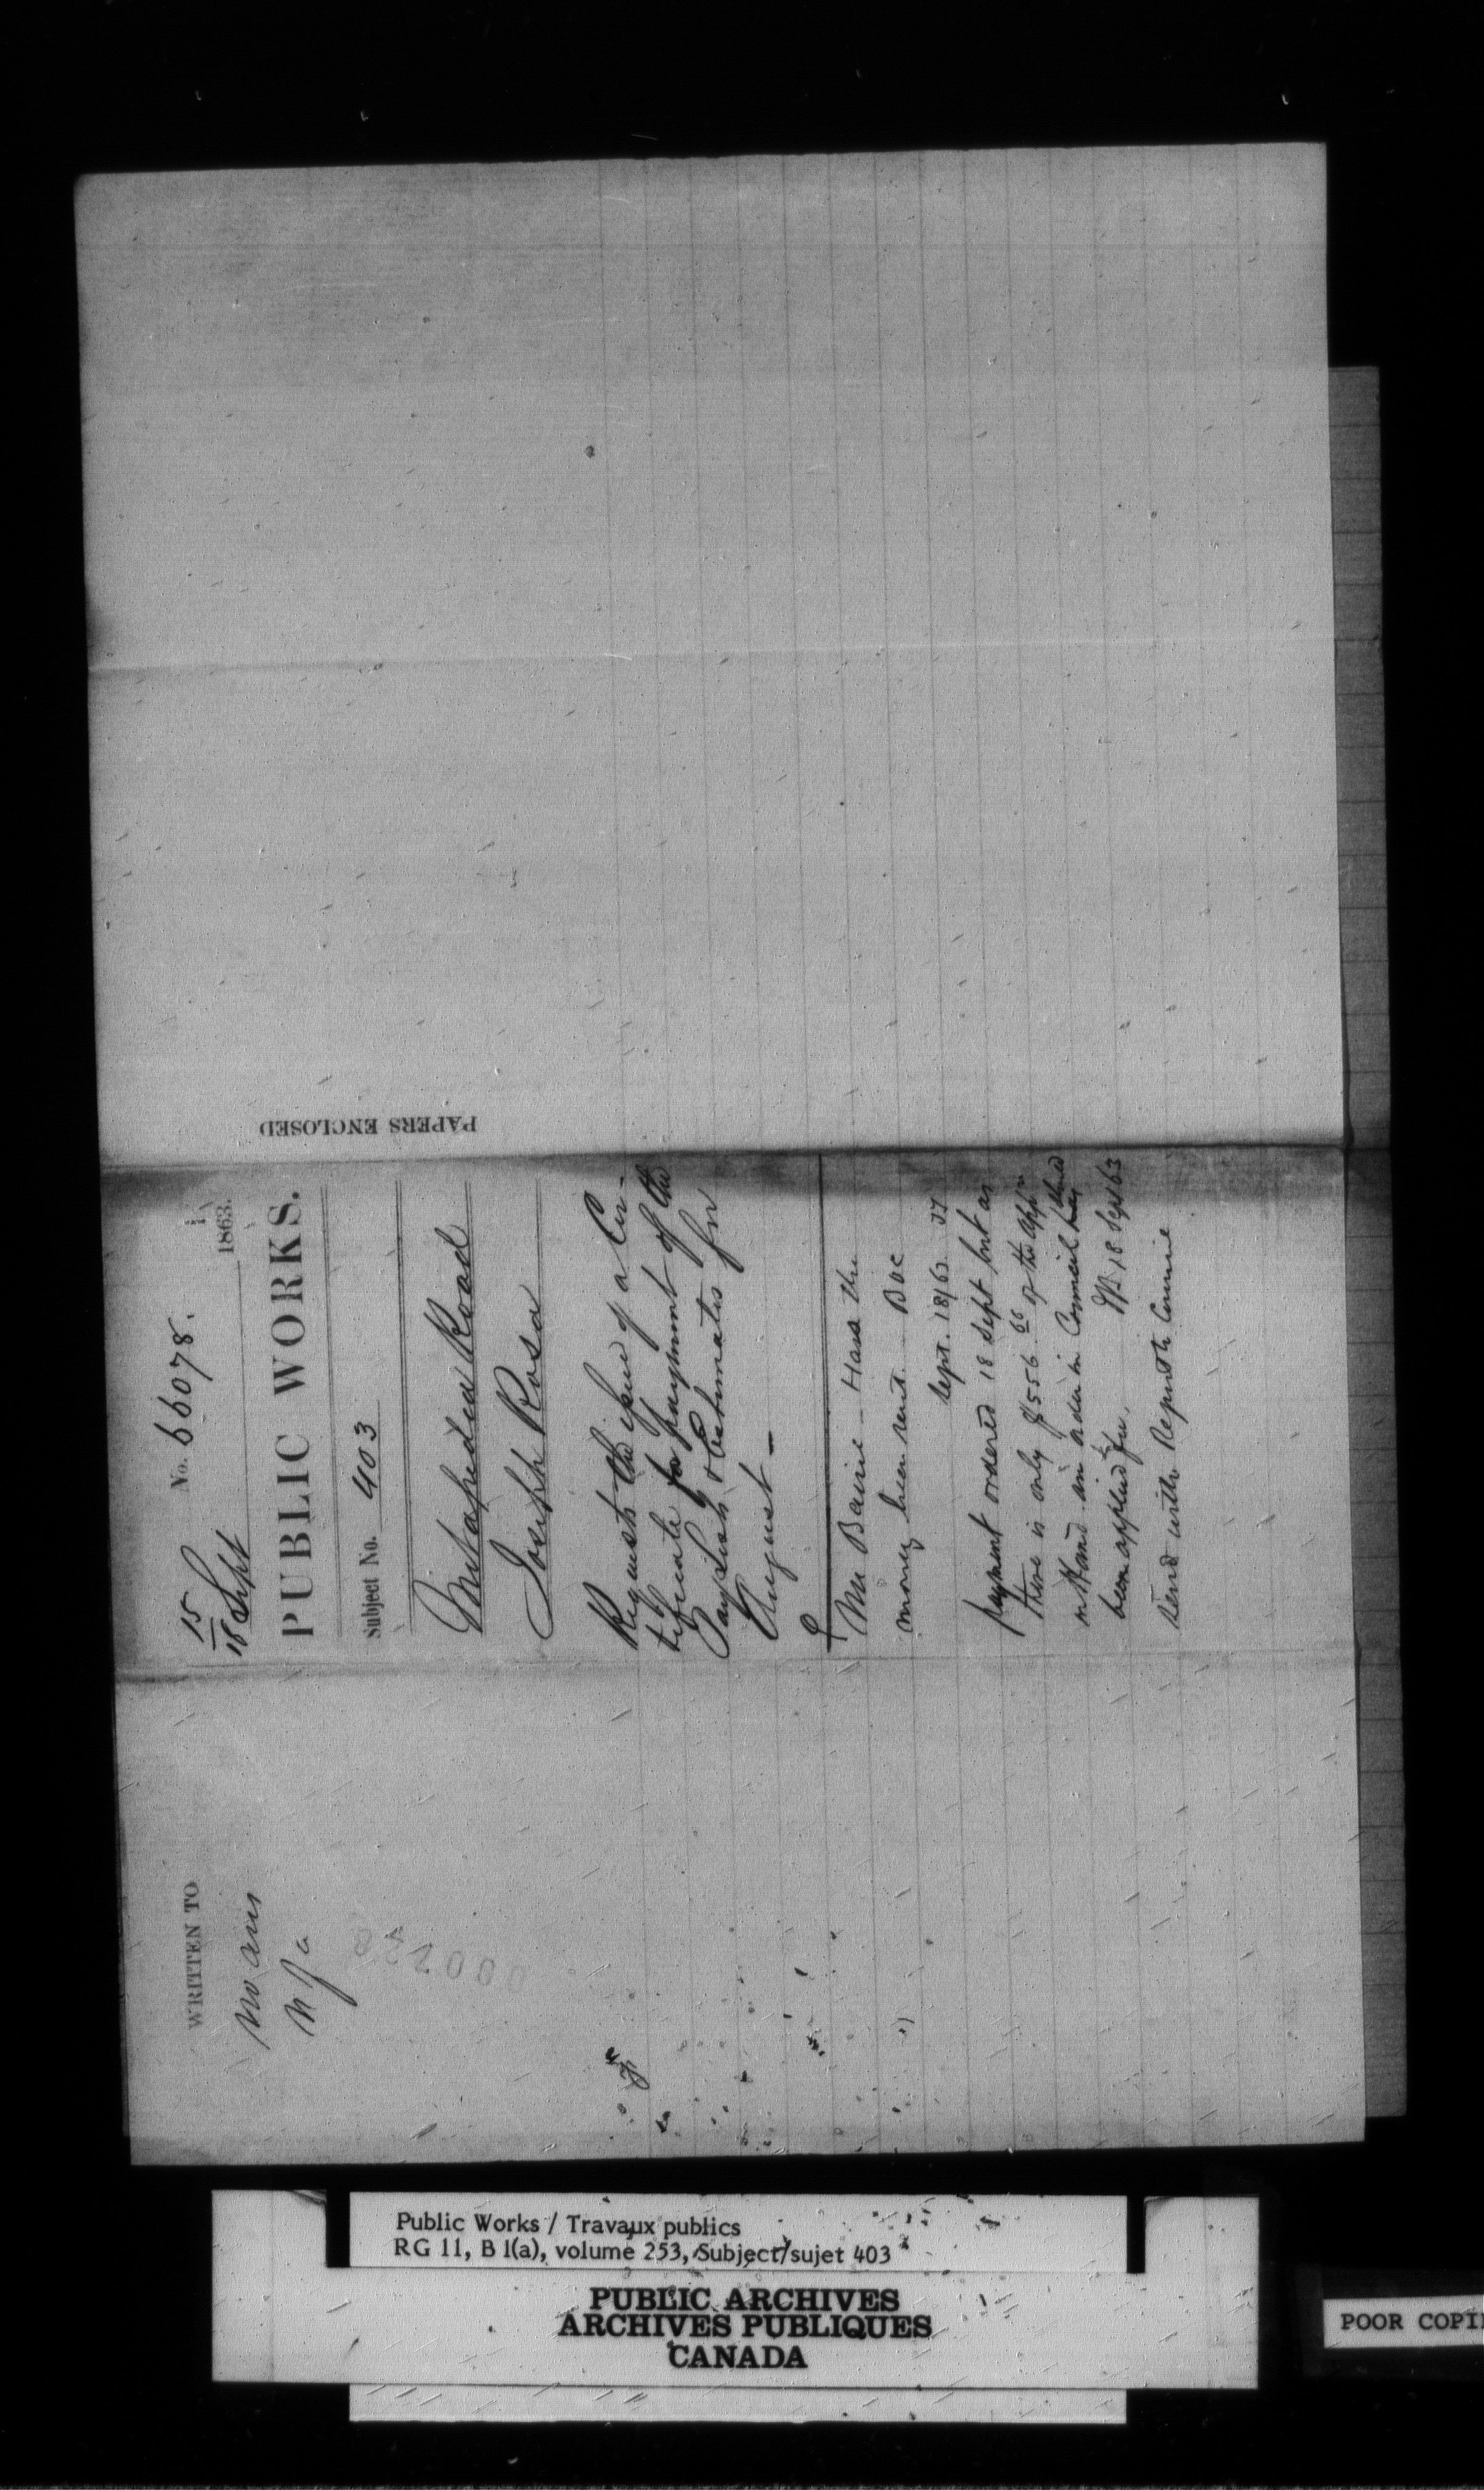 WRITTEN TO
no ans
15
18 Sept
No. 66078.
1863.
PUBLIC WORKS.
Subject No. 403
Metapedia Road
Joseph Rosa
Requests the issue of a Cer-
tificate for payment of the
Paylists & Estimates for
August —
Mr Baine – Has the
money been sent.
Sept. 18/63
payment ordered 18 Sept but as
there is only $556 66 of the app n
on Hand an order in Council
been applied for. 18 Sept 63
Send with Report to Council
PAPERS ENCLOSED
Public Works / Travaux publics
RG 11, B 1(a), volume 253, Subject/sujet 403
PUBLIC ARCHIVES
ARCHIVES PUBLIQUES
CANADA
POOR COPI